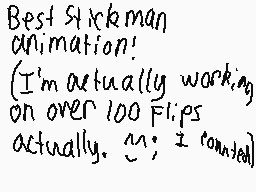 Best Stickman
animation!
(I'm actually working
on over 100 Flips
actually. ^^; I counted)